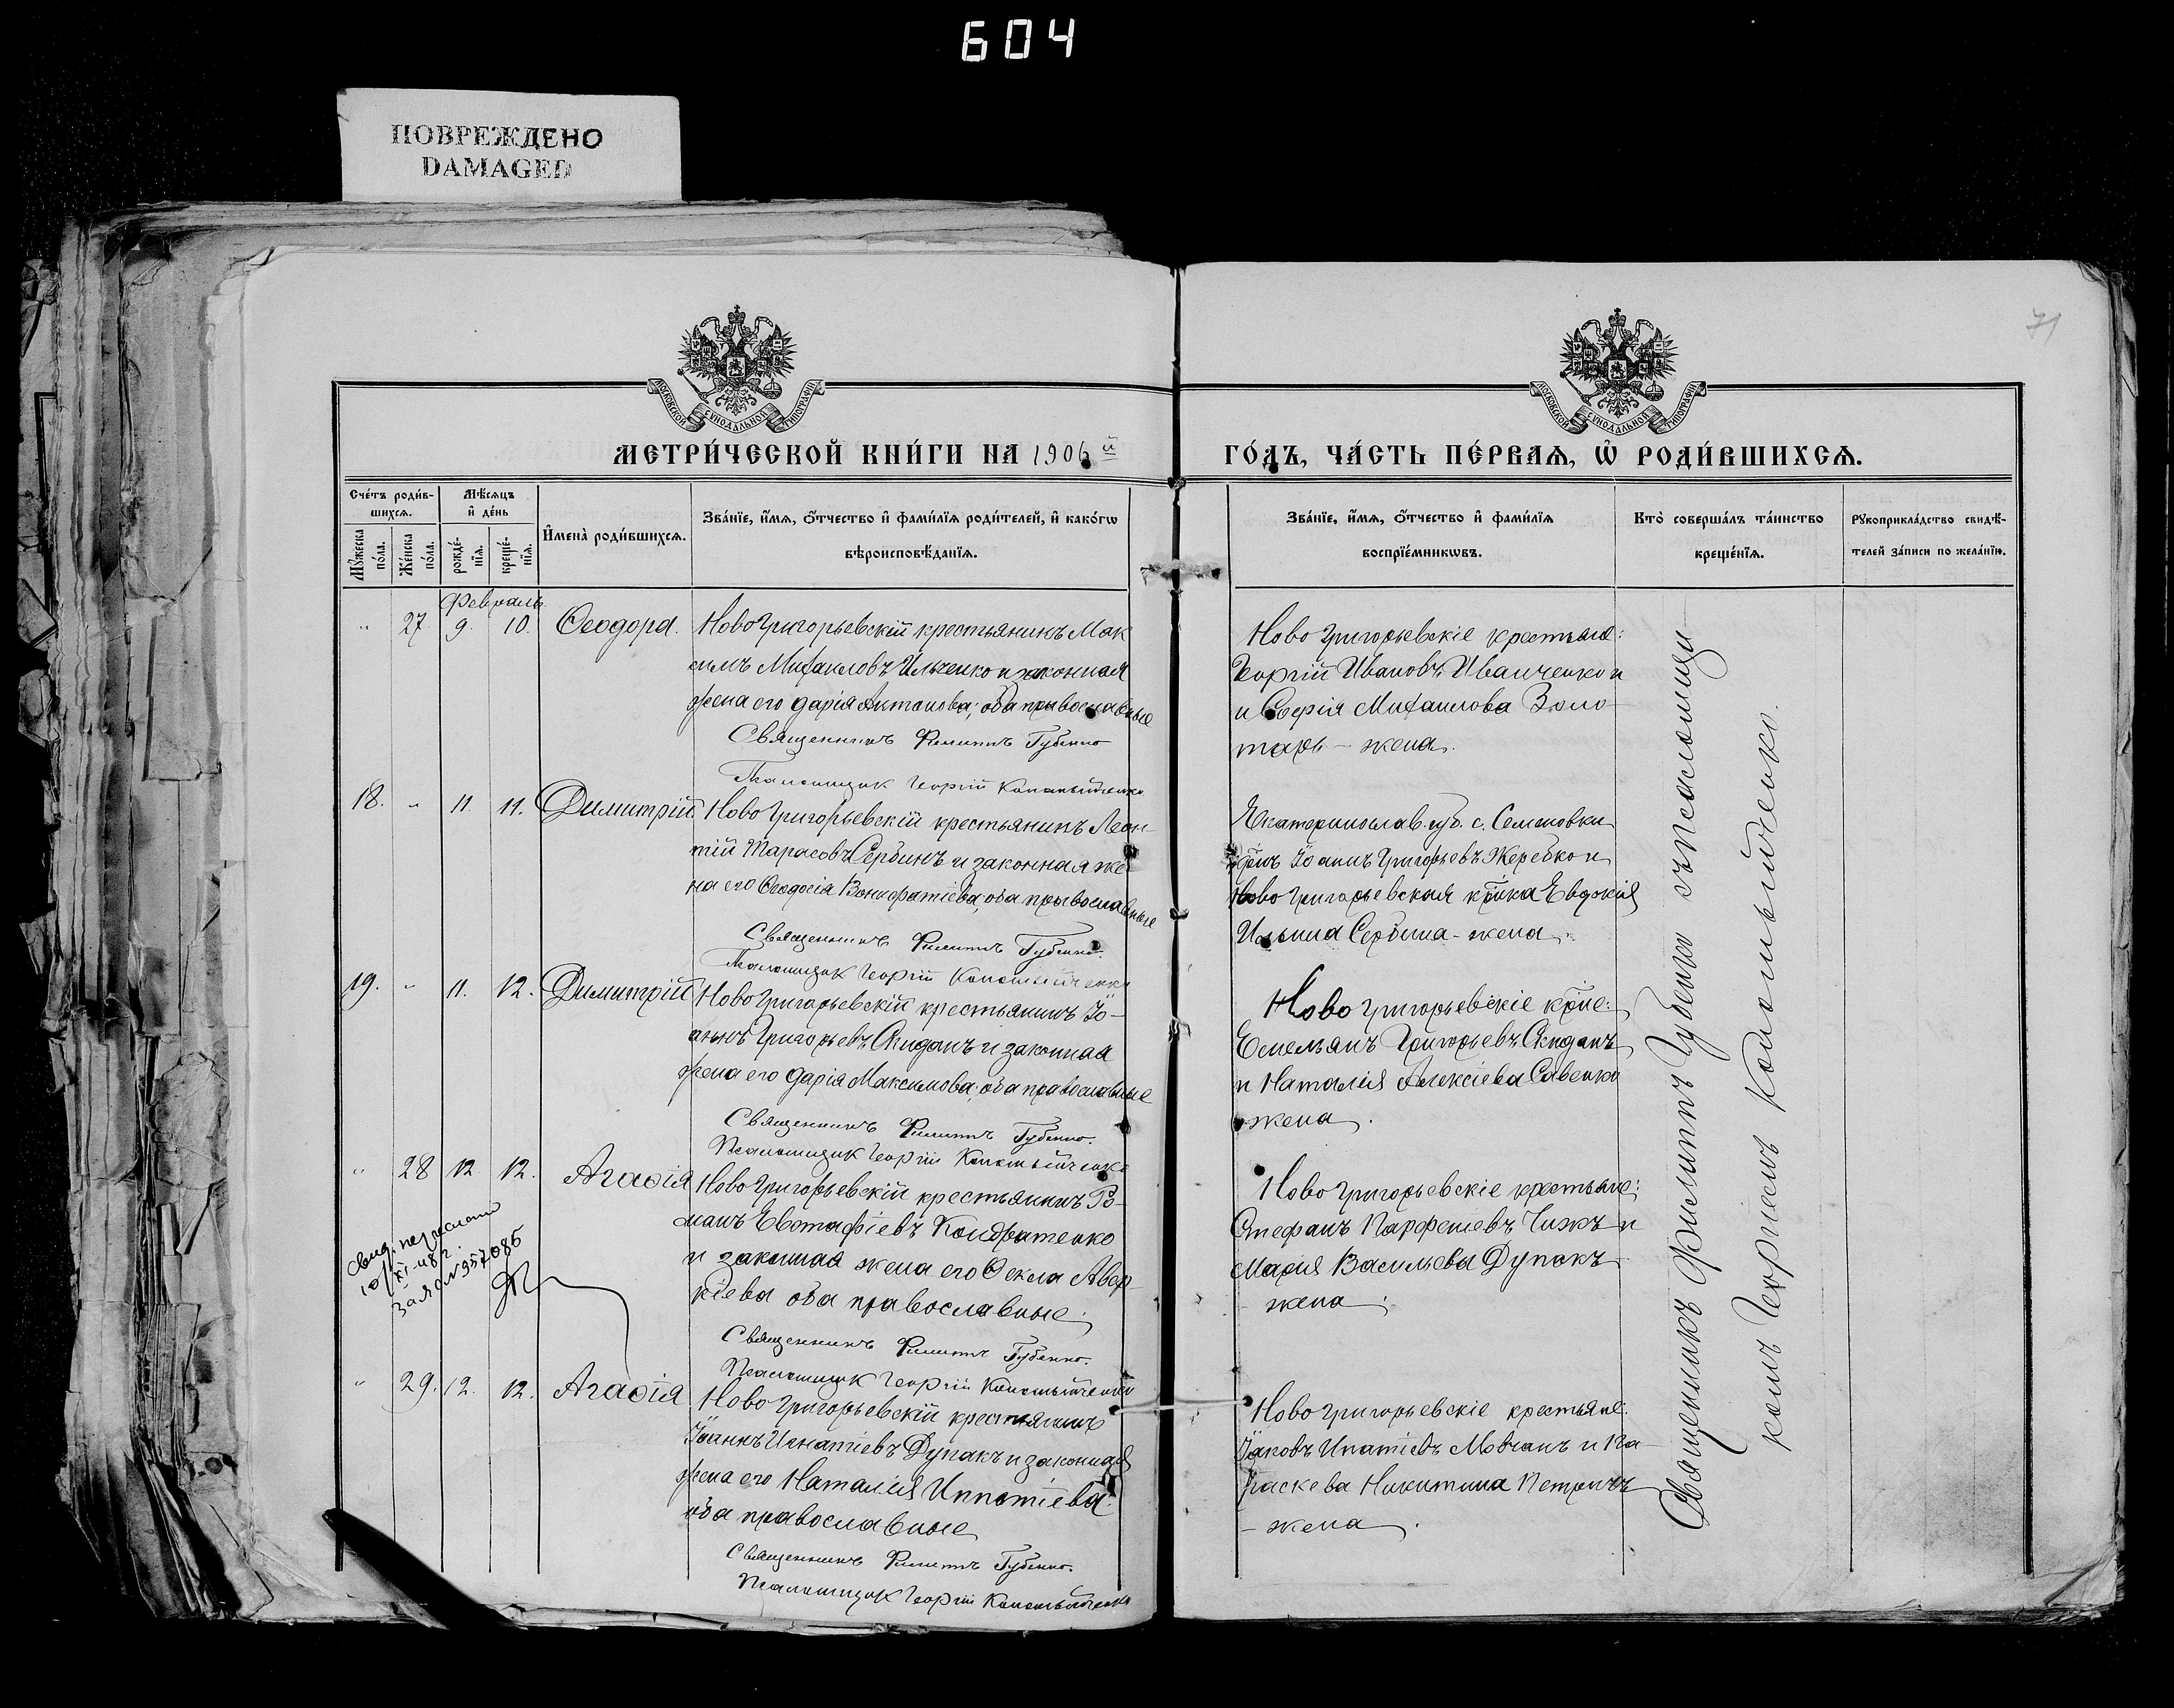 604
ПОВРЕЖДЕНО
DAMAGED
71
МОСКОВСКОЙ СѴНОДАЛЬНОЙ ТИПОГРАФІИ
МОСКОВСКОЙ СѴНОДАЛЬНОЙ ТИПОГРАФІИ
МЕТРИ́ЧЕСКОЙ КНИ́ГИ НА 1906 й
ГО́ДЪ, ЧА́СТЬ ПЕ́РВАѦ, Ѽ РОДИ́ВШИХСѦ.
Сче́тъ роди́в-
шихсѧ.
Мꙋ́жеска по́ла.
Же́нска по́ла.
Мѣ́сѧцъ
и҆ де́нь
рожде́-нїѧ.
креще́-нїѧ.
И҆мена̀ роди́вшихсѧ.
Зва́нїе, и҆́мѧ, ѻ҆́тчество и҆ фами́лїѧ роди́телей, и҆ како́гѡ
вѣроисповѣ́данїѧ.
Зва́нїе, и҆́мѧ, ѻ҆́тчество и҆ фами́лїѧ
воспрїе́мникѡвъ.
Кто̀ соверша́лъ та́инство
креще́нїѧ.
Рꙋкоприкла́дство свидѣ́-
телей за́писи по жела́нїю.
Февраль
" 27 9. 10. Ѳеодора.
НовоГригорьевскій крестьянинъ Мак
симъ Михаиловъ Ильченко и законная
жена его Дарія Антонова; оба православные
Священникъ Филиппъ Губенко
Псаломщик Георгій Копотьийченко
Ново Григорьевскіе крестьяне:
Георгій Ивановъ Иванченко и
и Софія Михаилова Золо
тарь – жена.
18. " 11. 11. Димитрій
НовоГригорьевскій крестьянинъ Леон-
тій Тарасовъ Сербинъ и законная же-
на его Ѳеодосія Вонифатіева, оба православные
Священникъ Филиппъ Губенко.
Псаломщик Георгій
Екатеринослав. губ. с. Семеновки
Іоаннъ Григорьевъ Жеребко и
Ново Григорьевская кр̃нка Евдокія
Ильина Сербина - жена.
19. " 11. 12. Димитрій
НовоГригорьевскій крестьянинъ Іо-
аннъ Григорьевъ Скиданъ и законная
жена его Дарія Максимова; оба православные
Священникъ Филиппъ Губенко.
Псаломщик Георгій
Ново Григорьевскіе кр̃не:
Емельянъ Григорьевъ Скиданъ
и Наталія Алексіева Савенко
жена.
" 28 12 12. Агаѳія
НовоГригорьевскій крестьянинъ Ро-
манъ Евстафіевъ Кондратенко
и законная жена его Ѳекла Авер-
кіева оба православные.
Священникъ Филиппъ Губенко.
Псаломщик Георгій
Ново Григорьевскіе крестьяне:
Стефанъ Парфеніевъ Чижъ и
Марія Васильева Дупакъ
жена.
свид. переслано
за № 957086
" 29. 12. 12. Агаѳія
НовоГригорьевскій крестьянинъ
Іоаннъ Игнатіевъ Дупакъ и законная
жена его Наталія Ипатіева:
оба православные
Священникъ Филиппъ Губенко.
Псаломщик Георгій
Ново Григорьевскіе крестьяне:
Іаковъ Ипатіевъ Мовчанъ и Па-
раскева Никитина
– жена.
Священникъ Филиппъ Губенко съ псаломщи-
комъ Георгіемъ